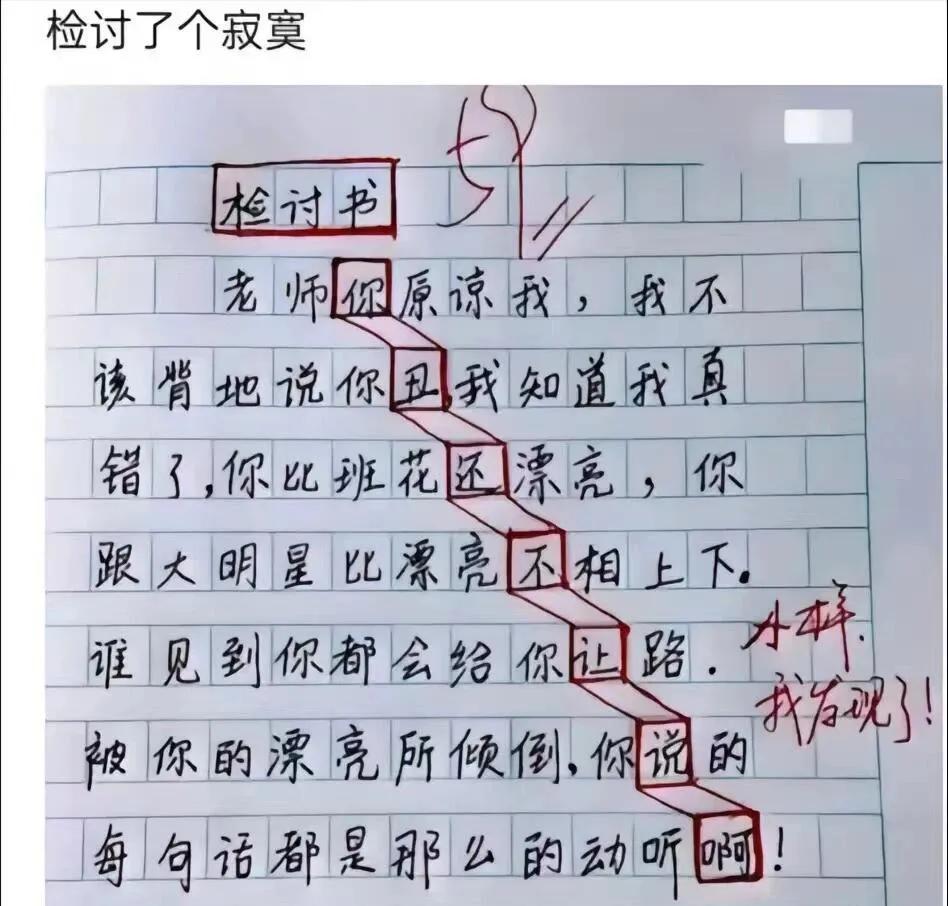 检讨了个寂寞
检讨书
老师你原谅我，我不
该背地说你丑,我知道我真
错了,你比班花还漂亮，你
跟大明星比漂亮不相上下.
谁见到你都会给你让路.
被你的漂亮所倾倒,你说的
每句话都是那么的动听啊!
小样.
我发现了!